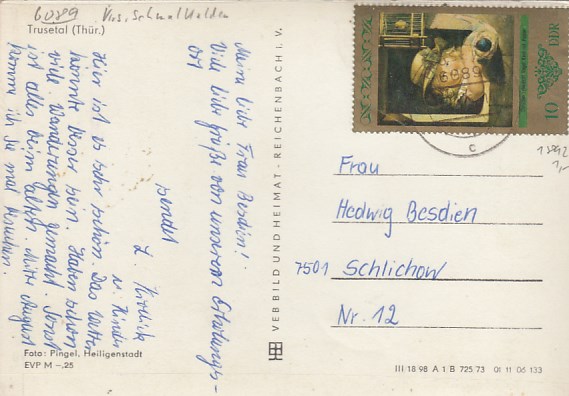 6089 Krs. Schmalkalden
Trusetal (Thür.)
Meine liebe Frau Besdien!
Viele liebe Grüße von unserem Erholungs-
ort sendet
u. Kinder
Hier ist es sehr schön. Das Wetter
könnte besser sein. Haben schon
viel Wanderungen gemacht. Sonst
ist alles beim Alten. Mitte August
komme ich Sie mal besuchen.
Foto: Pingel, Heiligenstadt
EVP M –.25
VEB BILD UND HEIMAT · REICHENBACH I. V.
10 DDR
6089
c
Frau
Hedwig Besdien
7501 Schlichow
Nr. 12
III 18 98 A 1 B 725 73 01 11 06 133